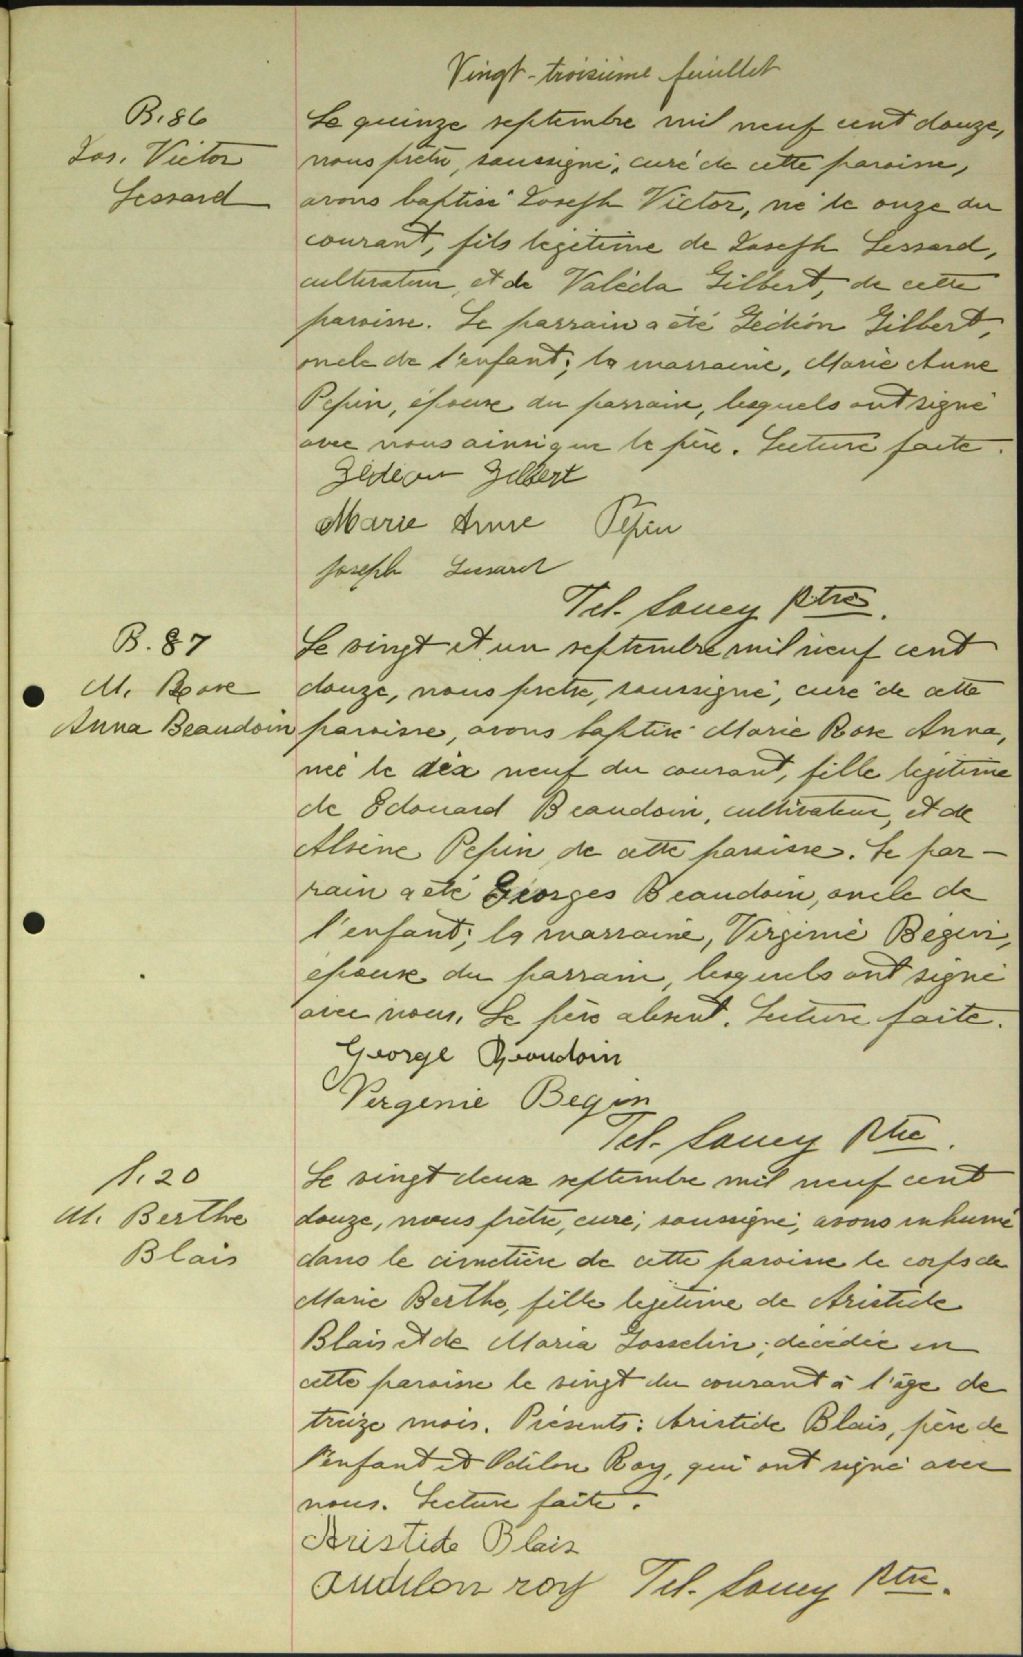 Vingt-troisième feuillet
B. 86
Jos. Victor
Lessard
Le quinze septembre mil neuf cent douze,
nous prêtre, soussigné, curé de cette paroisse,
avons baptisé Joseph Victor, né le onze du
courant, fils légitime de Joseph Lessard,
cultivateur, et de Valéda Gilbert, de cette
paroisse. Le parrain a été Gédéon Gilbert,
oncle de l'enfant; la marraine, Marie Anne
Pepin, épouse du parrain, lesquels ont signé
avec nous ainsi que le père. Lecture faite.
Gédéon Gilbert
Marie Anne Pepin
Joseph Lessard
Tel. Soucy Ptre.
B. 87
M. Rose
Anna Beaudoin
Le vingt et un septembre mil neuf cent
douze, nous prêtre, soussigné, curé de cette
paroisse, avons baptisé Marie Rose Anna,
née le dix neuf du courant, fille légitime
de Edouard Beaudoin, cultivateur, et de
Alsène Pepin de cette paroisse. Le par-
rain a été Georges Beaudoin, oncle de
l'enfant; la marraine, Virginie Bégin,
épouse du parrain, lesquels ont signé
avec nous. Le père absent. Lecture faite.
George Beaudoin
Vergenie Begin
Tel. Soucy Ptre.
S. 20
M. Berthe
Blais
Le vingt deux septembre mil neuf cent
douze, nous prêtre, curé, soussigné, avons inhumé
dans le cimetière de cette paroisse le corps de
Marie Berthe, fille légitime de Aristide
Blais et de Maria Gosselin; décédée en
cette paroisse le vingt du courant à l'âge de
treize mois. Présents: Aristide Blais, père de
l'enfant et Odilon Roy, qui ont signé avec
nous. Lecture faite.
Aristide Blais
audilon roy Tel. Soucy Ptre.